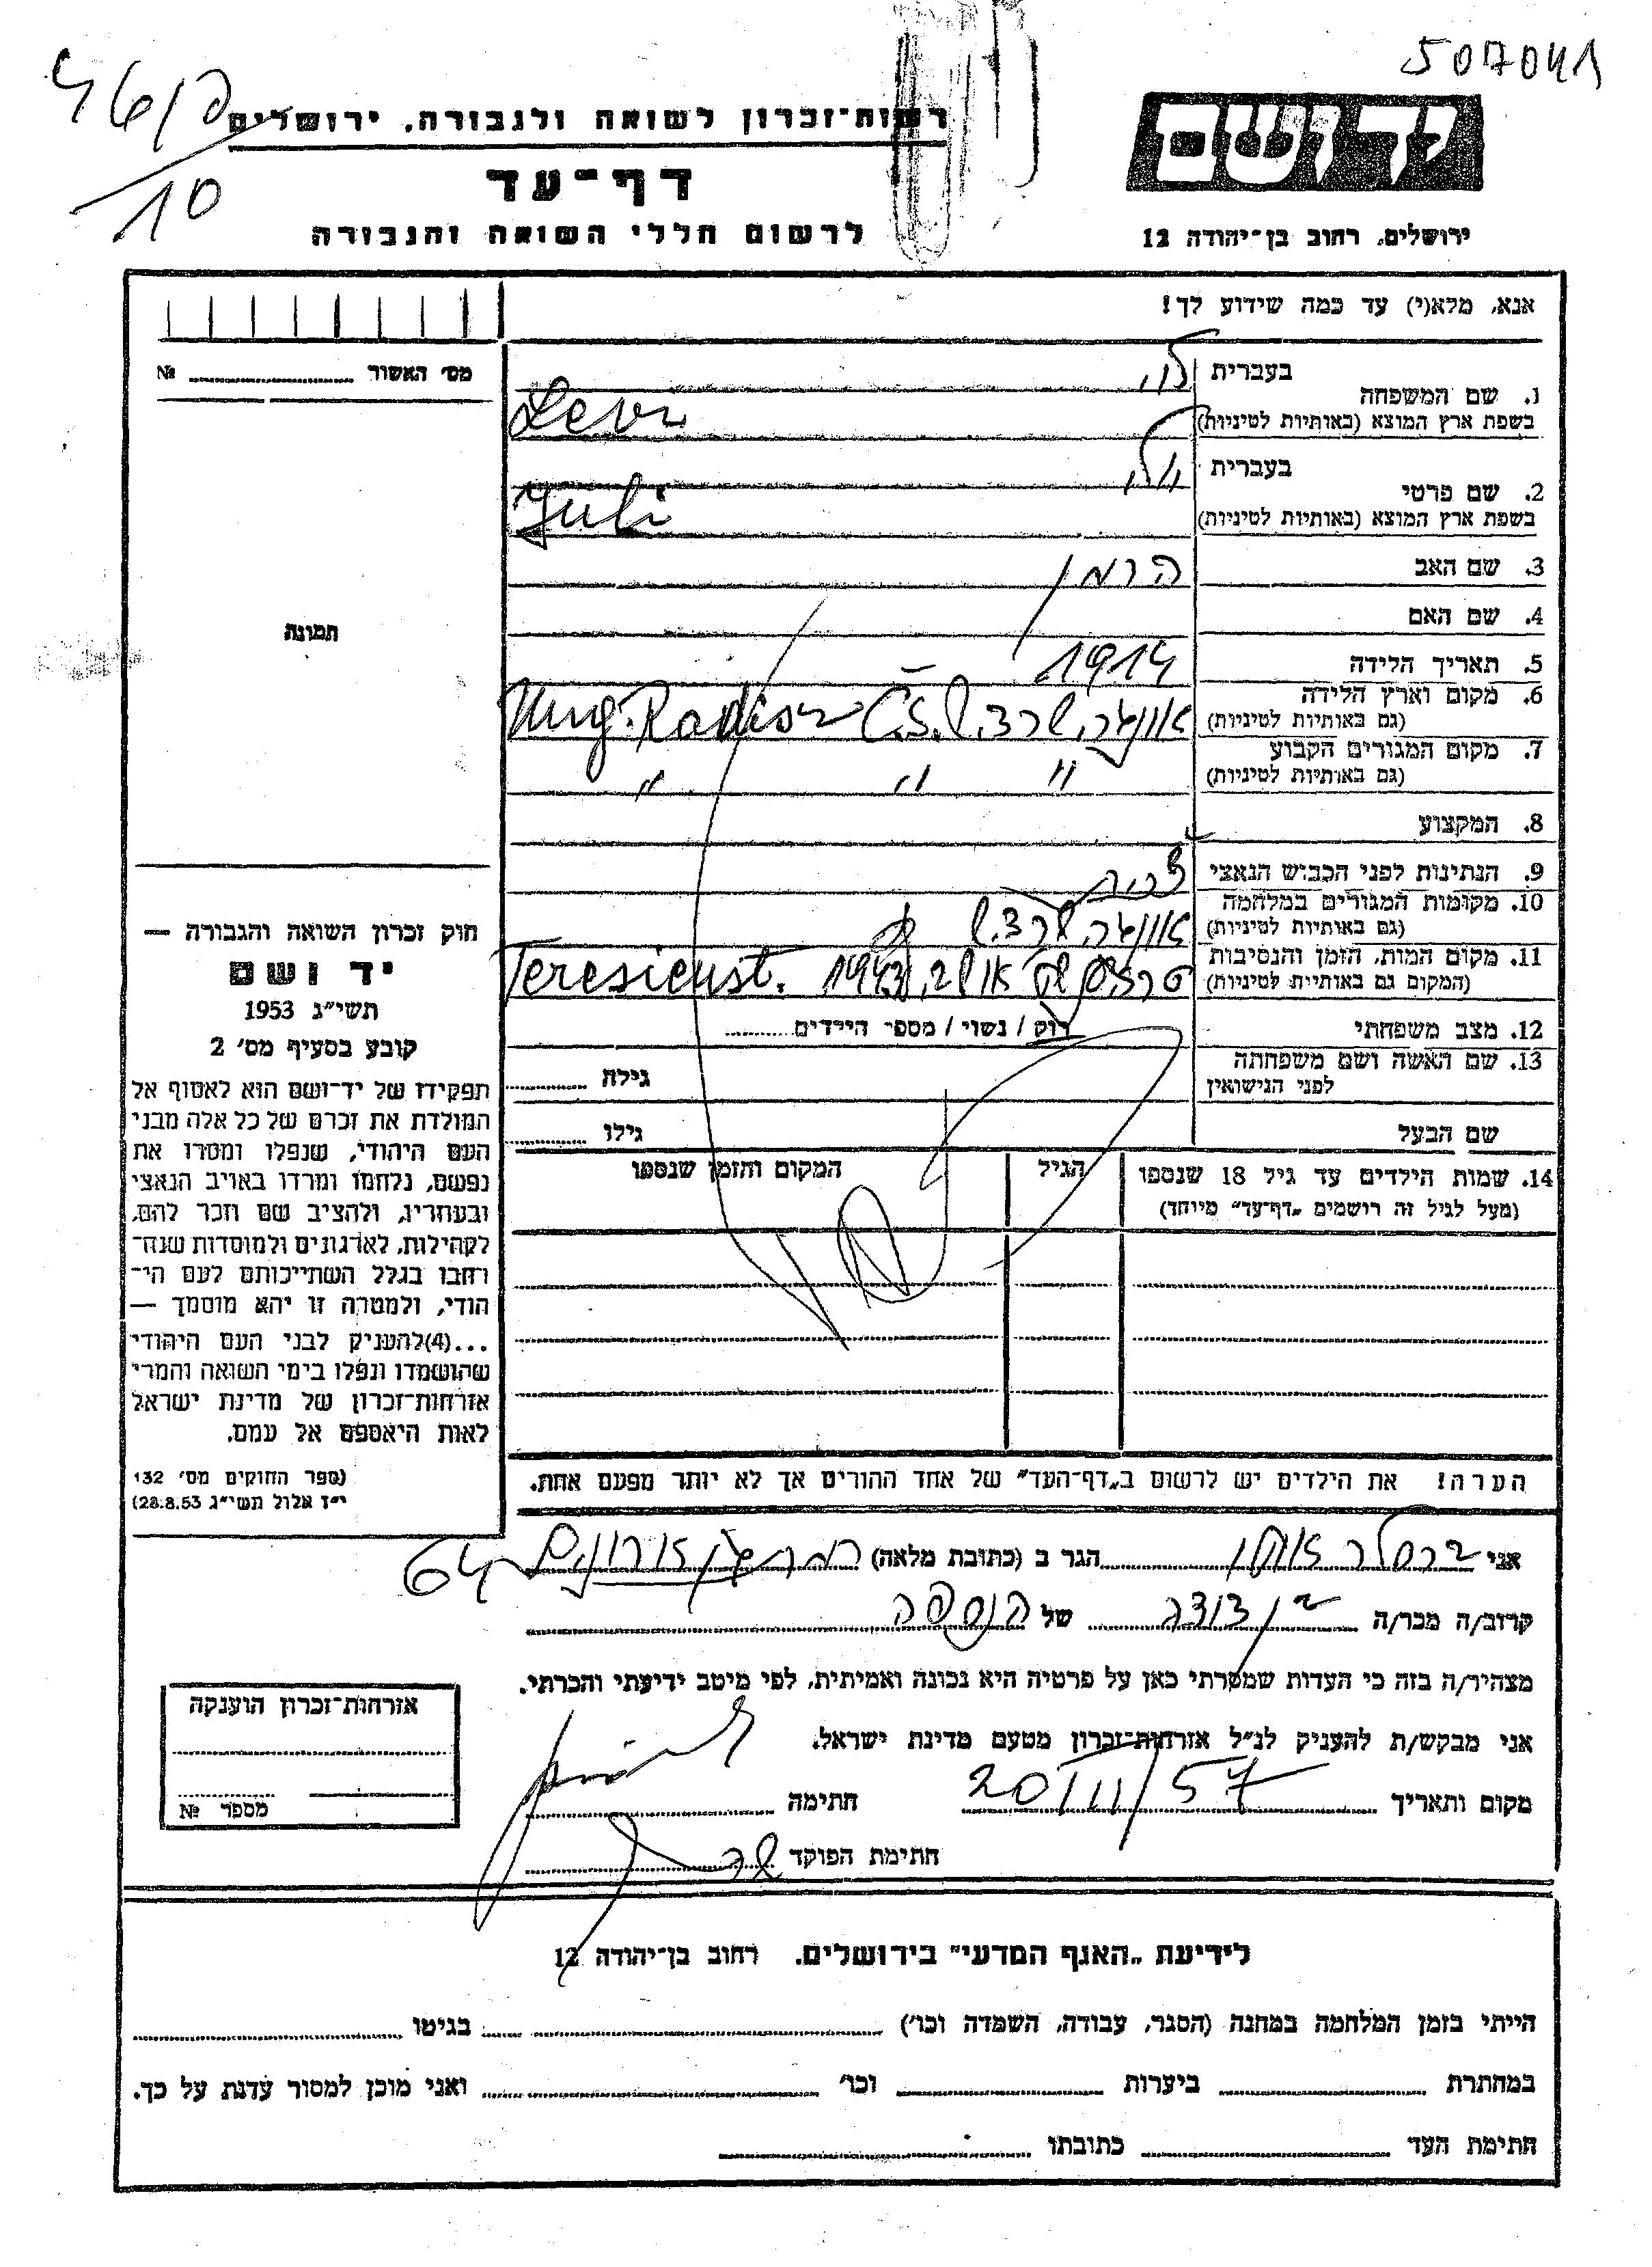 507041
46/0
10
רשות־זכרון לשואה ולגבורה, ירושלים
יד ושם
דף־עד
לרשום חללי השואה והגבורה
ירושלים, רחוב בן־יהודה 12
אנא, מלא(י) עד כמה שידוע לך!
מס' האשור № 
1. שם המשפחה בעברית לוי
בשפת ארץ המוצא (באותיות לטיניות) Levi
2. שם פרטי בעברית יולי
בשפת ארץ המוצא (באותיות לטיניות) Juli
3. שם האב הרמן
4. שם האם
תמונה
5. תאריך הלידה 1914
6. מקום וארץ הלידה
(גם באותיות לטיניות) Ung. Radisz Č.S.
7. מקום המגורים הקבוע
(גם באותיות לטיניות) " " "
8. המקצוע
9. הנתינות לפני הכבוש הנאצי
10. מקומות המגורים במלחמה
(גם באותיות לטיניות)
11. מקום המות, הזמן והנסיבות
(המקום גם באותיות לטיניות) 1943 Teresienst.
12. מצב משפחתי רוק / נשוי / מספר הילדים
13. שם האשה ושם משפחתה
לפני הנישואין גילה
שם הבעל גילו
14. שמות הילדים עד גיל 18 שנספו הגיל המקום והזמן שנספו
(מעל לגיל זה רושמים „דף־עד" מיוחד)
חוק זכרון השואה והגבורה —
יד ושם
תשי"ג 1953
קובע בסעיף מס' 2
תפקידו של יד־ושם הוא לאסוף אל
המולדת את זכרם של כל אלה מבני
העם היהודי, שנפלו ומסרו את
נפשם, נלחמו ומרדו באויב הנאצי
ובעוזריו, ולהציב שם וזכר להם,
לקהילות, לארגונים ולמוסדות שנח־
רחבו בגלל השתייכותם לעם הי־
הודי, ולמטרה זו יהא מוסמך —
...(4)להעניק לבני העם היהודי
שהושמדו ונפלו בימי השואה והמרי
אזרחות־זכרון של מדינת ישראל
לאות היאספם אל עמם.
(ספר החוקים מס' 132
י"ז אלול תשי"ג 28.8.53)
הערה! את הילדים יש לרשום ב„דף־העד" של אחד ההורים אך לא יותר מפעם אחת.
אני הגר ב (כתובת מלאה) 64
קרוב/ה מכר/ה בן דודה של הנספה
מצהיר/ה בזה כי העדות שמסרתי כאן על פרטיה היא נכונה ואמיתית, לפי מיטב ידיעתי והכרתי.
אני מבקש/ת להעניק לנ"ל אזרחות־זכרון מטעם מדינת ישראל.
מקום ותאריך 20/II/57 חתימה
חתימת הפוקד
אזרחות־זכרון הוענקה
מספר №
לידיעת „האגף המדעי" בירושלים. רחוב בן־יהודה 12
הייתי בזמן המלחמה במחנה (הסגר, עבודה, השמדה וכו') בגיטו
במחתרת ביערות וכו' ואני מוכן למסור עדות על כך.
חתימת העד כתובתו